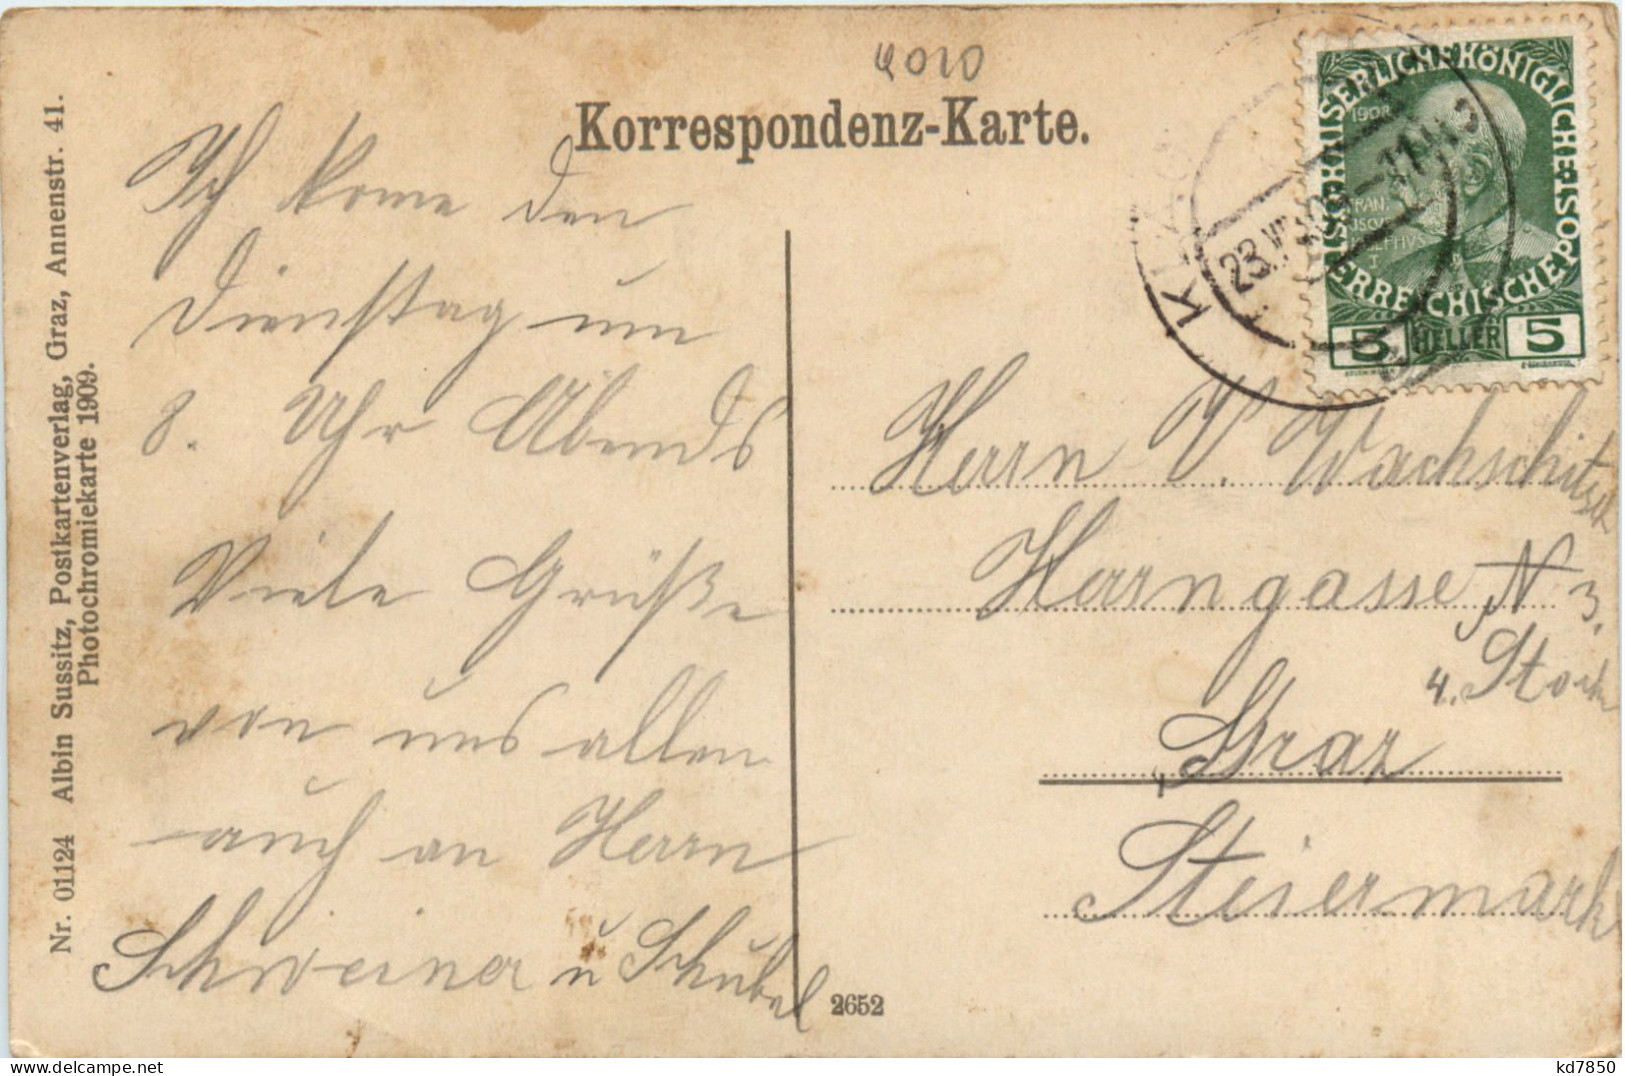 4010
Korrespondenz-Karte.
Ich kome den
Dienstag um
8. Uhr Abends
Viele Grüße
von uns allen
auch an Herrn
Schweiner u Schubel
Nr. 01124 Albin Sussitz, Postkartenverlag, Graz, Annenstr. 41.
Photochromiekarte 1909.
2652
KAISERLICHE KÖNIGLICHE ÖSTERREICHISCHE POST
1908
FRAN.
JOSEPHVS
I
5 HELLER 5
23.VI
-11
Herrn V. Wachschitsch
Herrngasse N 3.
4. Stock
Graz
Steiermark
kd7850